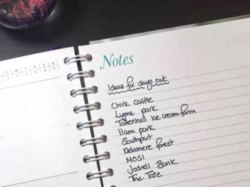 Notes
Ideas for days out
Chirk Castle
Lyme park
Tattenhall ice cream farm
Ilam park
Southport
Delamere forest
MOSI
Jodrell Bank
The Tate